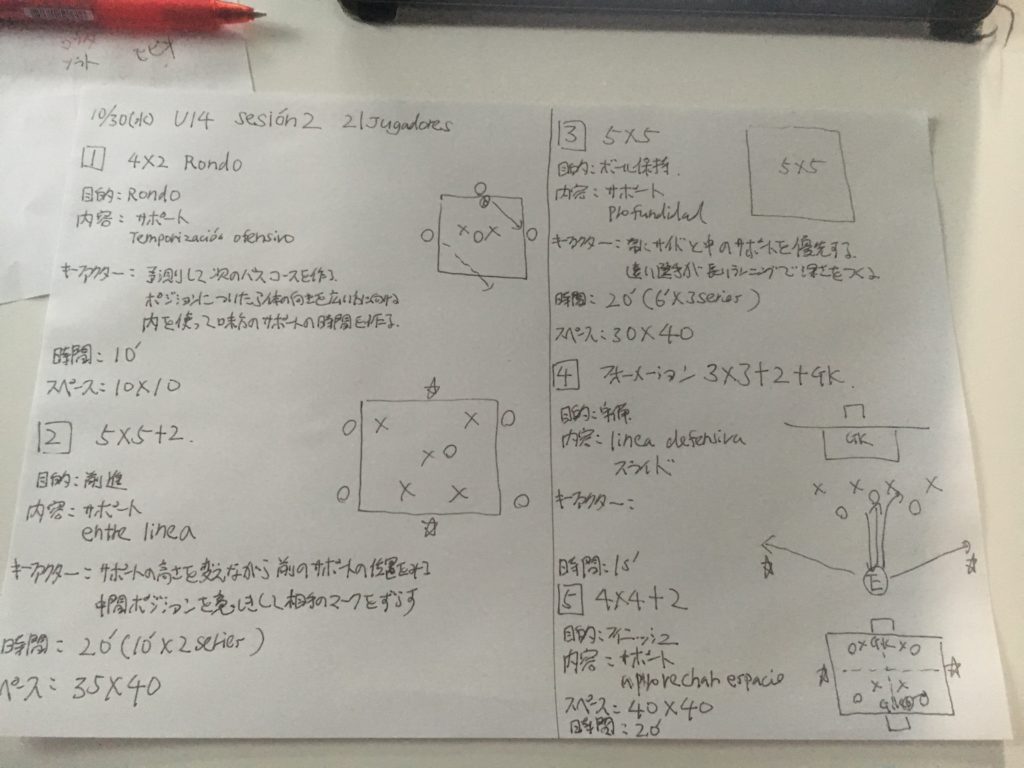 ヒビオ
10/30(水) U14 sesión2 21Jugadores
1 4×2 Rondo
目的: Rondo
内容: サポート
Temporización ofensivo
キーファクター: 予測して次のパスコースを作る.
ポジションについたら体の向きを広い方に向ける
内を使って味方のサポートの時間を作る.
時間: 10'
スペース: 10×10
2 5×5+2.
目的: 前進
内容: サポート
entre linea
キーファクター: サポートの高さを変えながら前のサポートの位置をとる
中間ポジションを意しきして相手のマークをずらす
時間: 20' (10'×2series)
ペース: 35×40
3 5×5
5×5
目的: ボール保持.
内容: サポート
profundidad
キーファクター: 常にサイドと中のサポートを優先する.
遠い選手が長いランニングで深さをつくる
時間: 20' (6'×3series)
スペース: 30×40
4 フォーメーション 3×3+2+GK.
目的: 守備
内容: linea defensiva
スライド
GK
キーファクター:
E
時間: 15'
5 4×4+2
目的: フィニッシュ
内容: サポート
aprovechar espacio
GK
スペース: 40×40
時間: 20'